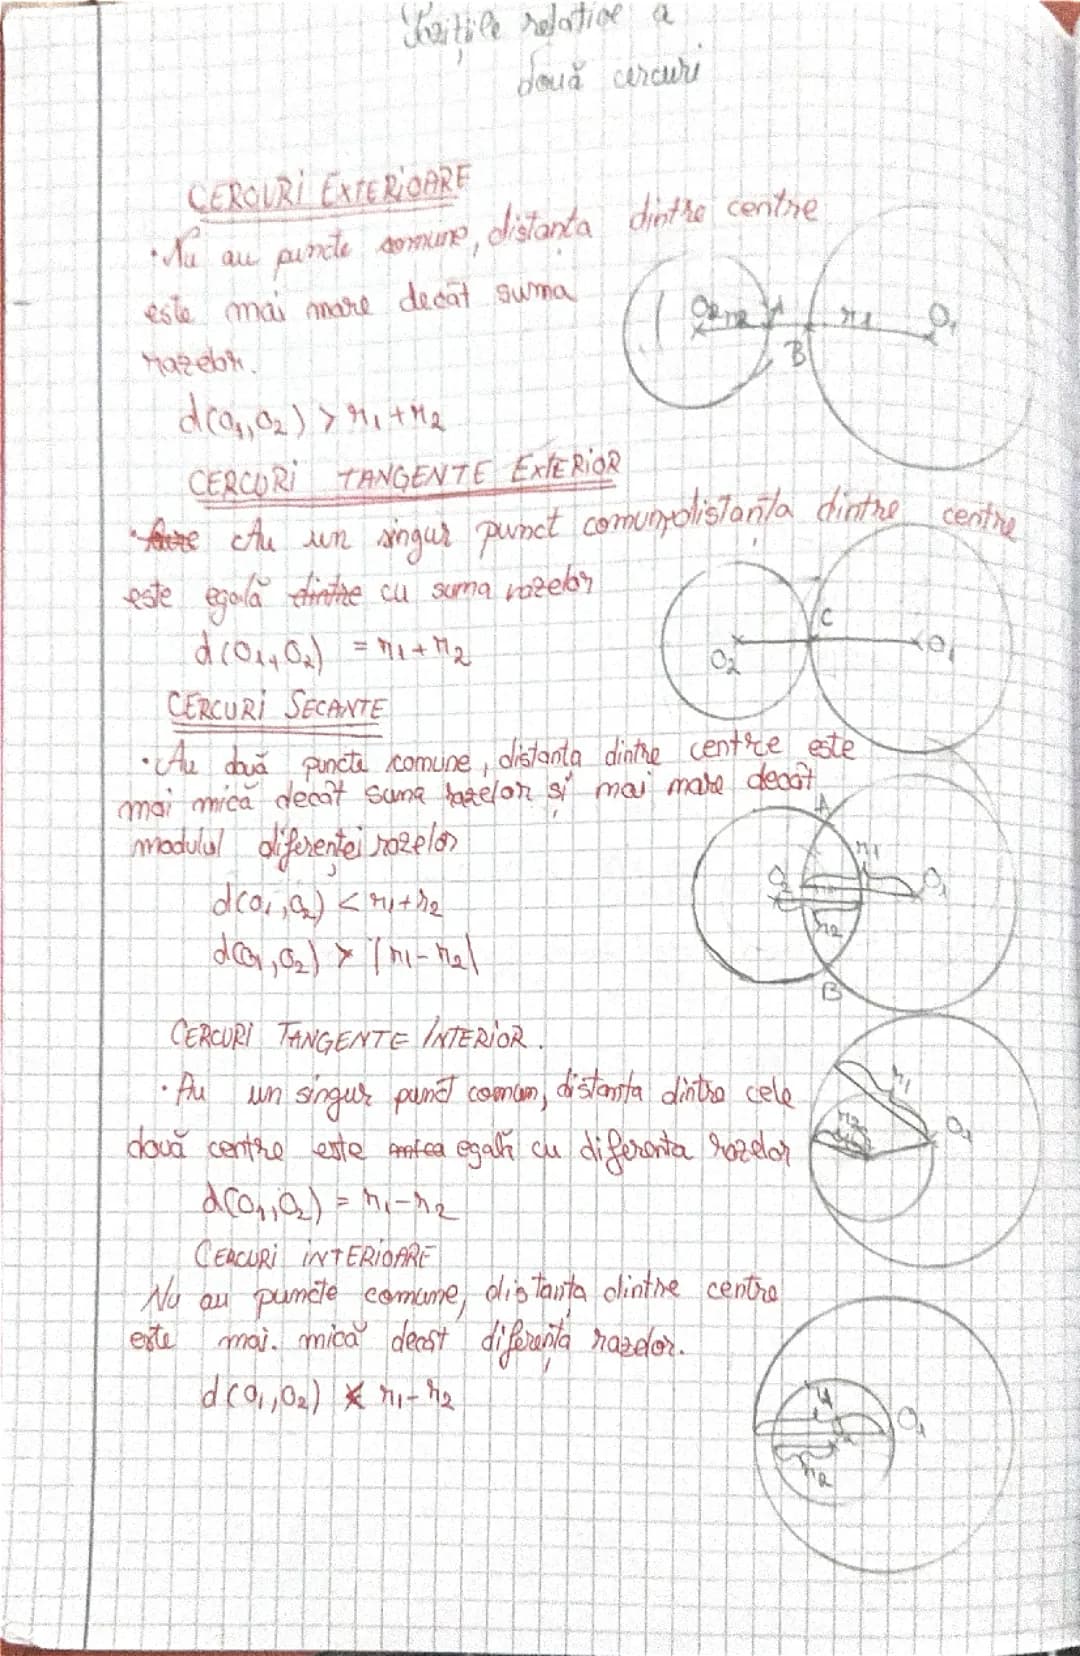 Pozițiile relative a
două cercuri
CERCURI EXTERIOARE
• Nu au puncte comune, distanța dintre centre
este mai mare decât suma
razelor.
d(O1,O2) > r1 + r2
O2 r2 A B r1 O1
CERCURI TANGENTE EXTERIOR
• Au un singur punct comun, distanța dintre centre
este egală dintre cu suma razelor
d(O1,O2) = r1 + r2
O2 C O1
CERCURI SECANTE
• Au două puncte comune, distanța dintre centre este
mai mică decât suma razelor și mai mare decât
modulul diferenței razelor
d(O1,O2) < r1+r2
d(O1,O2) > |r1-r2|
A O2 r1 O1 r2 B
CERCURI TANGENTE INTERIOR.
• Au un singur punct comun, distanța dintre cele
două centre este egală cu diferența razelor
d(O1,O2) = r1-r2
r1 r2 O1
CERCURI INTERIOARE
Nu au puncte comune, distanța dintre centre
este mai. mică decât diferența razelor.
d(O1,O2) < r1-r2
r1 O1 r2